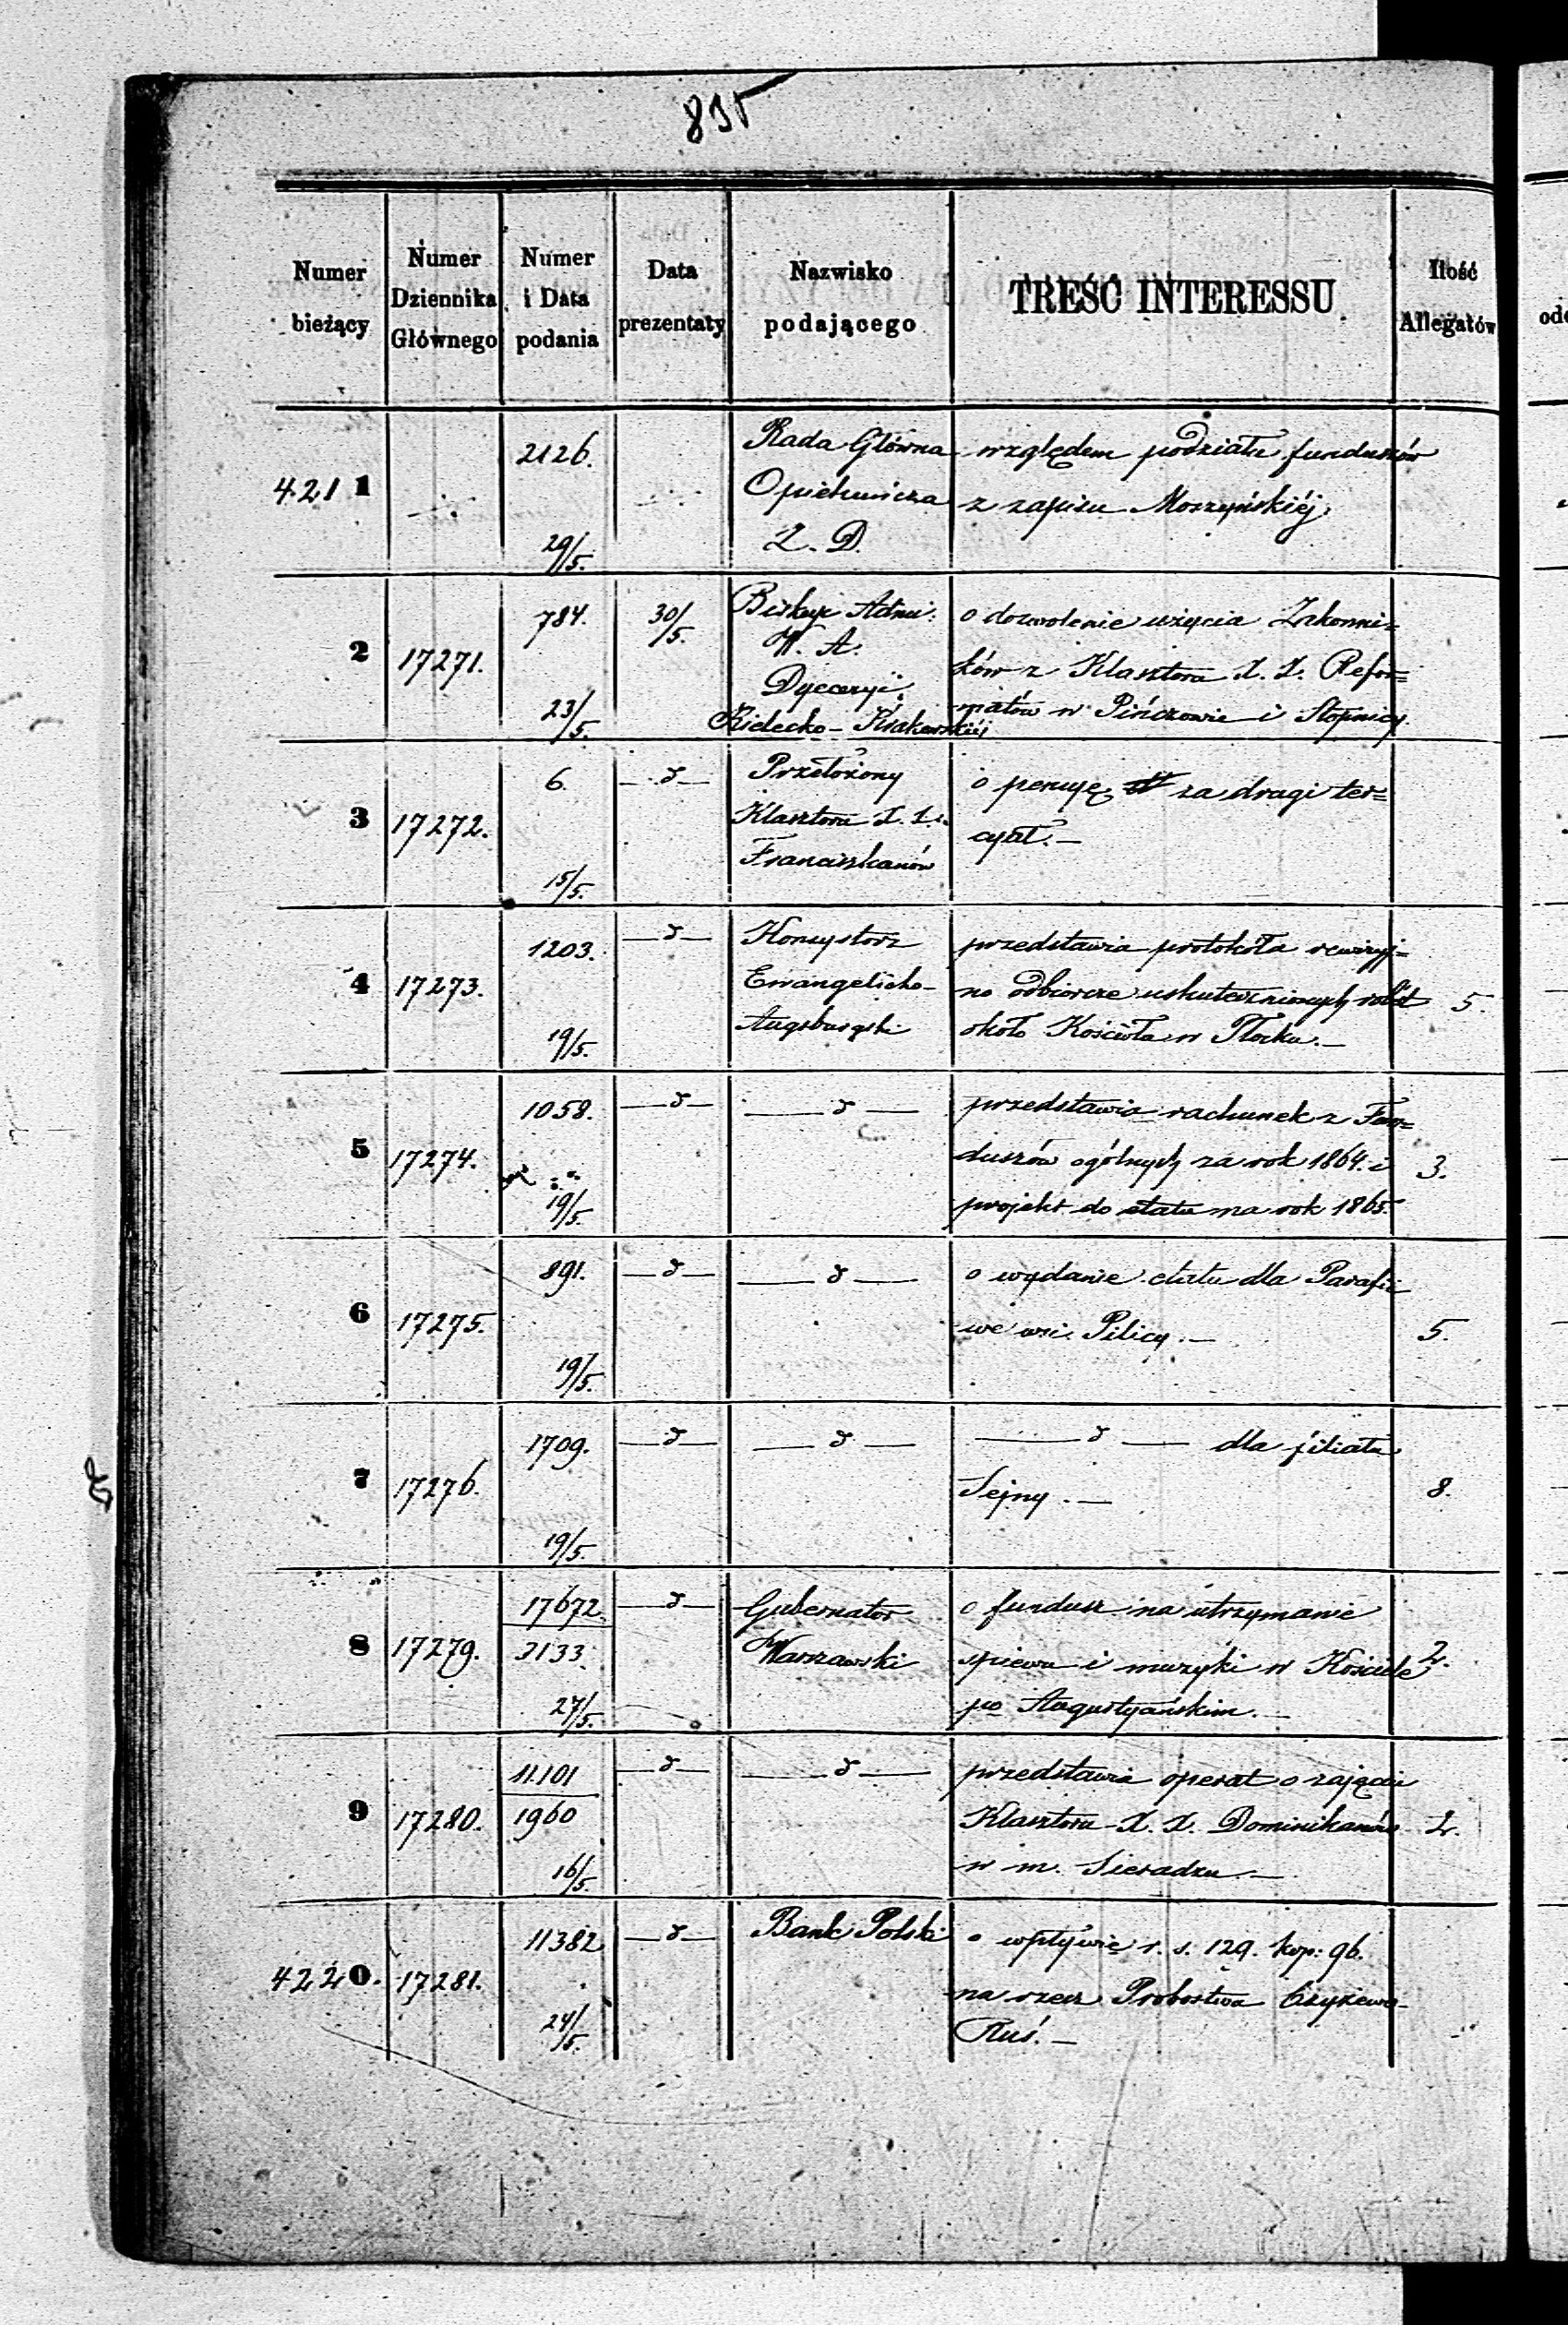 835
Numer bieżący
Numer Dziennika Głównego
Numer i Data podania
Data prezentaty
Nazwisko podającego
TREŚĆ INTERESSU
Ilość Allegatów
4211
2126.
29/5.
Rada Główna
Opiekuńcza
Z. D.
względem podziału funduszów
z zapisu Moszyńskiéj.
2
17271.
784.
23/5.
30/5.
Biskup Admi:
W. A.
Dyecezyi
Kielecko-Krakowskiéj
o dozwolenie użycia Zakonni=
ków z Klasztoru X. X. Refor=
matów w Pińczowie i Stopnicy
3
17272.
6.
15/5.
—d—
Przełożony
Klasztoru X. X.
Franciszkanów
o pensyę za drugi ter=
cyał.—
4
17273.
1203.
19/5.
—d—
Konsystorz
Ewangelicko-
Augsburgski
przedstawia protokóła rewizyj=
no odbiorcze uskutecznionych robót
około Kościoła w Płocku.—
5.
5
17274.
1058.
19/5.
—d—
—d—
przedstawia rachunek z Fun=
duszów ogólnych za rok 1864. i
projekt do etatu na rok 1865.
3.
6
17275.
891.
19/5.
—d—
—d—
o wydanie etatu dla Parafii
we wsi Pilicy.—
5.
7
17276.
1709.
19/5.
—d—
—d—
—d— dla filiału
Sejny.—
8.
8
17279.
17672.
3133.
27/5.
—d—
Gubernator
Warszawski
o fundusz na utrzymanie
spiewu i muzyki w Kościele
po Augustyańskim.—
2.
9
17280.
11.101
1960
16/5.
—d—
—d—
przedstawia operat o zajęciu
Klasztoru X. X. Dominikanów
w m. Sieradzu.—
2.
4220.
17281.
11382
24/5.
—d—
Bank Polski
o wpływie r. s. 129. kop: 96.
na rzecz Probostwa Czyżewo-
Ruś.—